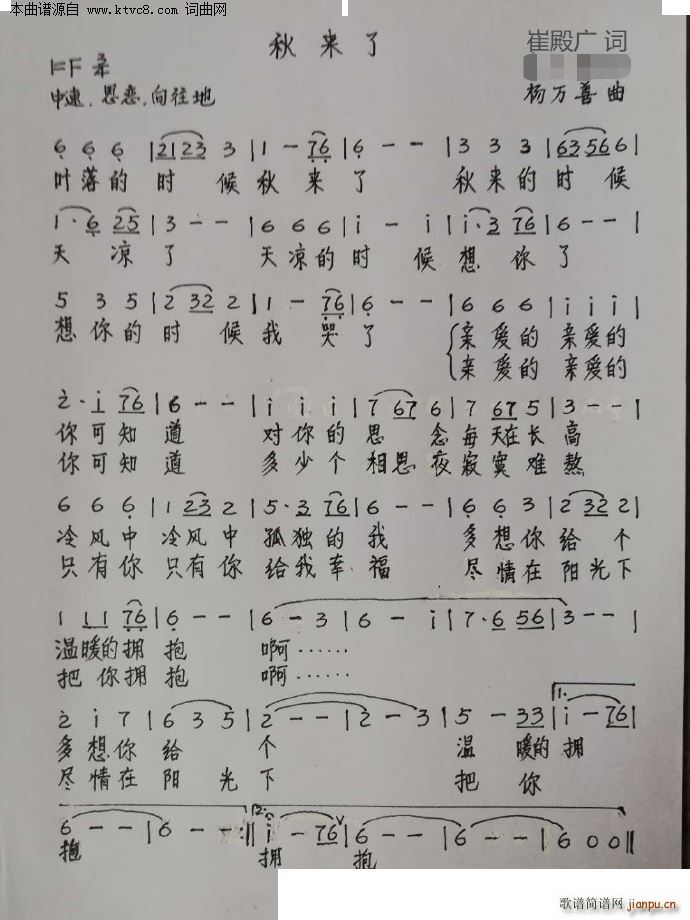 本曲谱源自 www.ktvc8.com 词曲网
秋来了
崔殿广 词
1=F 3/4
中速、思恋、向往地
杨万善 曲
6 6 6 | 2123 3 | 1 - 76 | 6 - - | 3 3 3 | 63 56 6 |
叶落的时候秋来了 秋来的时候
1· 6 25 | 3 - - | 6 6 6 | i - i | i·3 76 | 6 - - |
天凉了 天凉的时候想你了
5 3 5 | 2 32 2 | 1 - 76 | 6 - - | 6 6 6 | i i i |
想你的时候我哭了 亲爱的 亲爱的
亲爱的 亲爱的
2· i 76 | 6 - - | i i i | 7 67 6 | 7 67 5 | 3 - - |
你可知道 对你的思念每天在长高
你可知道 多少个相思夜寂寞难熬
6 6 6 | 1 23 2 | 5· 3 76 | 6 - - | 6 6 3 | 2 32 2 |
冷风中 冷风中 孤独的我 多想你给个
只有你 只有你 给我幸福 尽情在阳光下
1 1 1 76 | 6 - - | 6 - 3 | 6 - i | 7· 6 56 | 3 - - |
温暖的拥抱 啊……
把你拥抱 啊……
2 i 7 | 6 3 5 | 2 - - | 2 - 3 | 5 - 33 | 1. i - 76 |
多想你给个 温暖的拥
尽情在阳光下 把你
6 - - | 6 - - :|| 2. i - 76 V | 6 - - | 6 - - | 6 0 0 ||
抱 拥 抱
歌谱简谱网
jianpu.cn